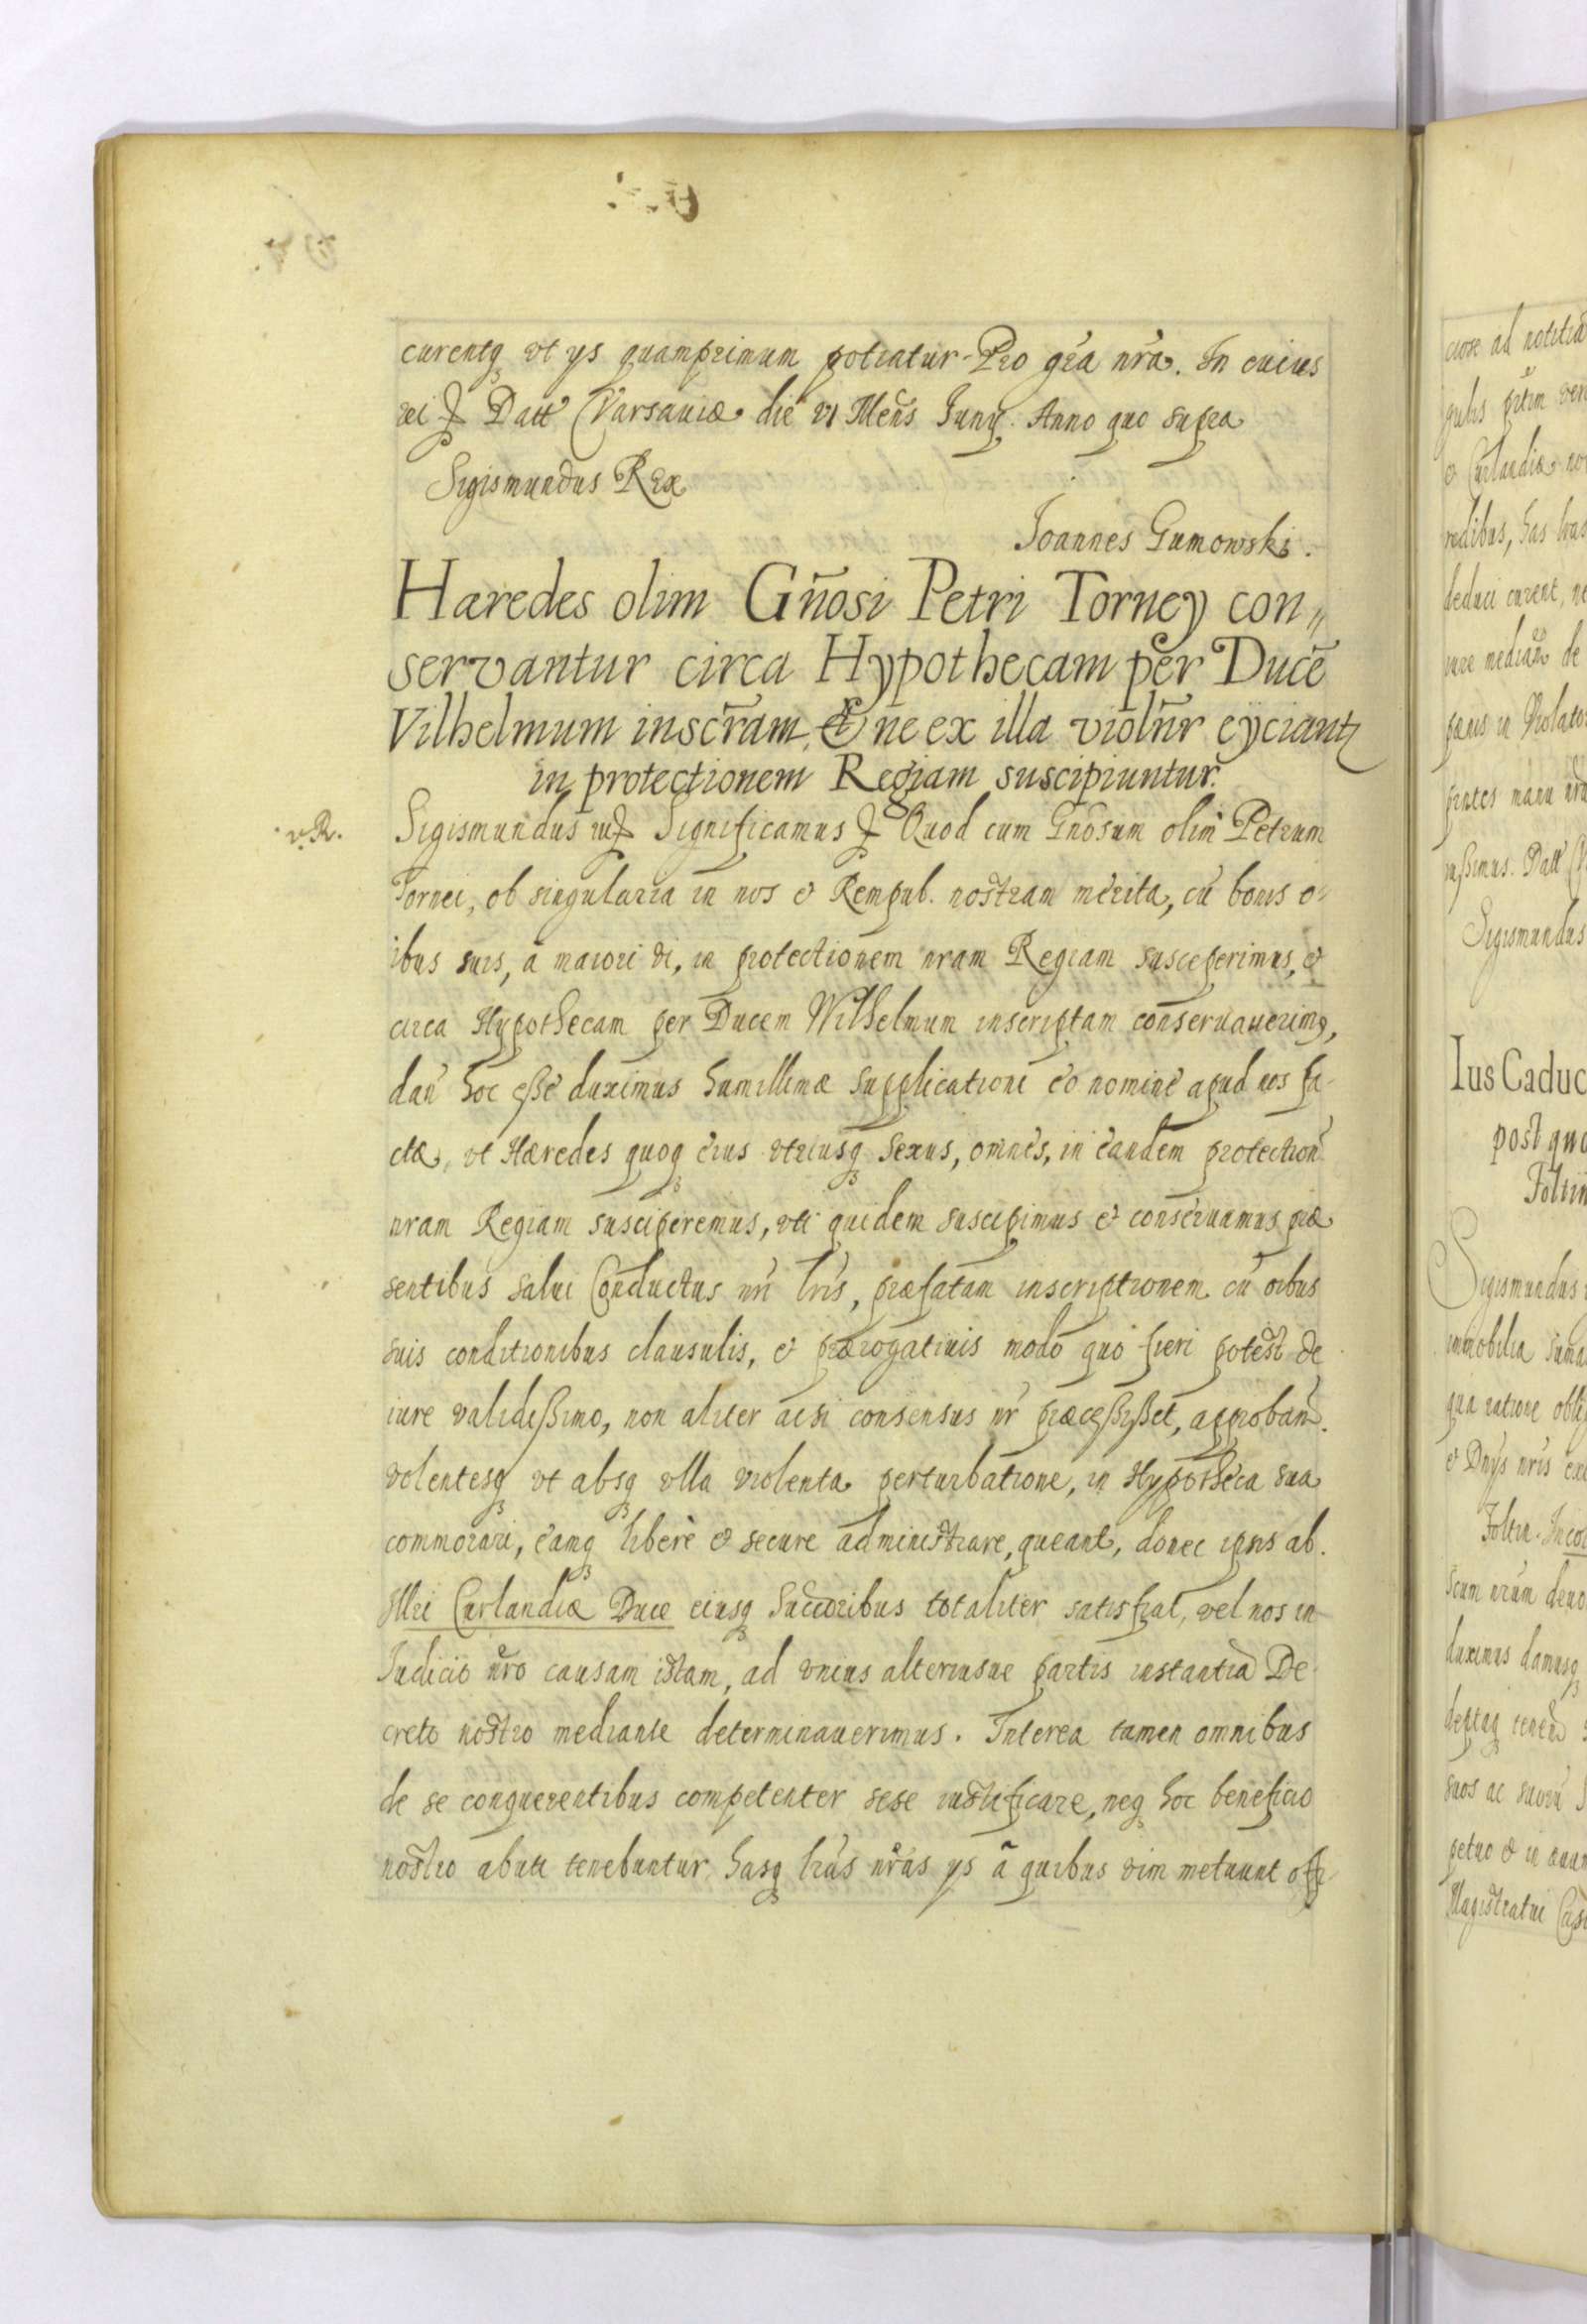 curentq ut ijs quamprimum potiatur. Pro gr̃a nr̃a. In cuius
rei Datt Varsauiæ die vi Mens̃ Junij. Anno quo supra
Sigismundus Rex
Joannes Gumowski.
Haeredes olim Gñosi Petri Torney con„
servantur circa Hypothecam per Ducẽ
Vilhelmum inscr̃am, & ne ex illa violñr eÿciantʒ
in protectionem Regiam suscipiuntur.
v.R. Sigismundus Significamus Quod cum Gñosum olim Petrum
Tornei, ob singularia in nos & Rempub. nostram merita, cũ bonis o-
ibus suis, a maiori vi, in protectionem nram Regiam susceperimus, &
circa Hypothecam per Ducem Wilhelmum inscriptam conservauerimꝰ,
dañ hoc esse duximus humillimæ supplicationi eo nomine apud nos fa-
ctæ, ut Hæredes quoq eius utriusq sexus, omnes, in eandem protectionẽ
nram Regiam susciperemus, uti quidem suscipimus et conseruamus præ
sentibus salui Conductus nr̃i lr̃is, præfatam inscriptionem cũ oibus
suis conditionibus clausulis, & prærogatiuis modo quo fieri potest de
iure validissimo, non aliter acsi consensus nr̃ præcessisset, approbam̃.
volentesq ut absq ulla violenta perturbatione, in Hypotheca sua
commorari, eamq liberè & secure administrare, queant, donec ipsis ab
Illri Curlandiæ Duce eiusq Succoribus totaliter satisfiat, vel nos in
Judicio nr̃o causam istam, ad unius alteriusue partis instantiã De
creto nostro mediante determinauerimus. Interea tamen omnibus
de se conquerentibus competenter sese iustificare, neq hoc beneficio
nostro abuti tenebuntur hasq lr̃as nr̃as ijs à quibus vim metuunt offi-
Ius Caduc
post quo
Sigismundus